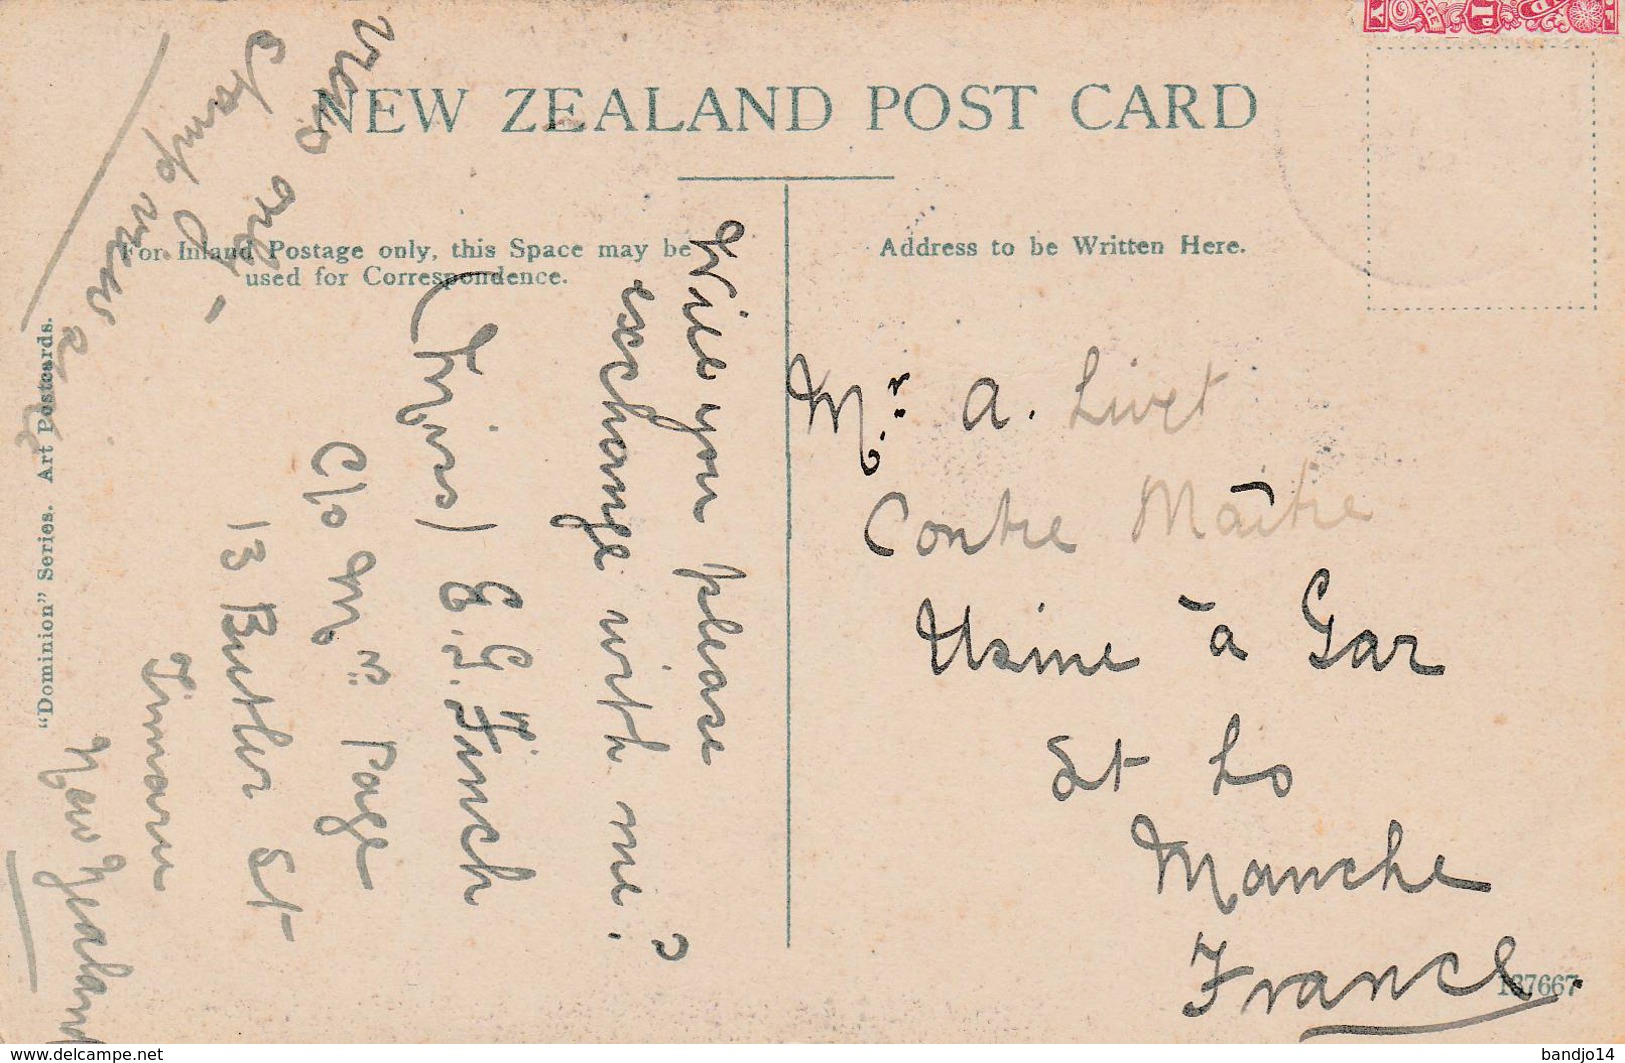 NEW ZEALAND POST CARD
For Inland Postage only, this Space may be
used for Correspondence.
Address to be Written Here.
"Dominion" Series. Art Postcards.
Will you please
exchange with me?
(Miss) E. G. Finch
C/o Mrs Page
13 Butler St
Timaru
New Zealand
view only
Stamp
view
Mr. A. Livet
Contre Maître
Usine à Gaz
St Lo
Manche
France
137667
www.delcampe.net
bandjo14